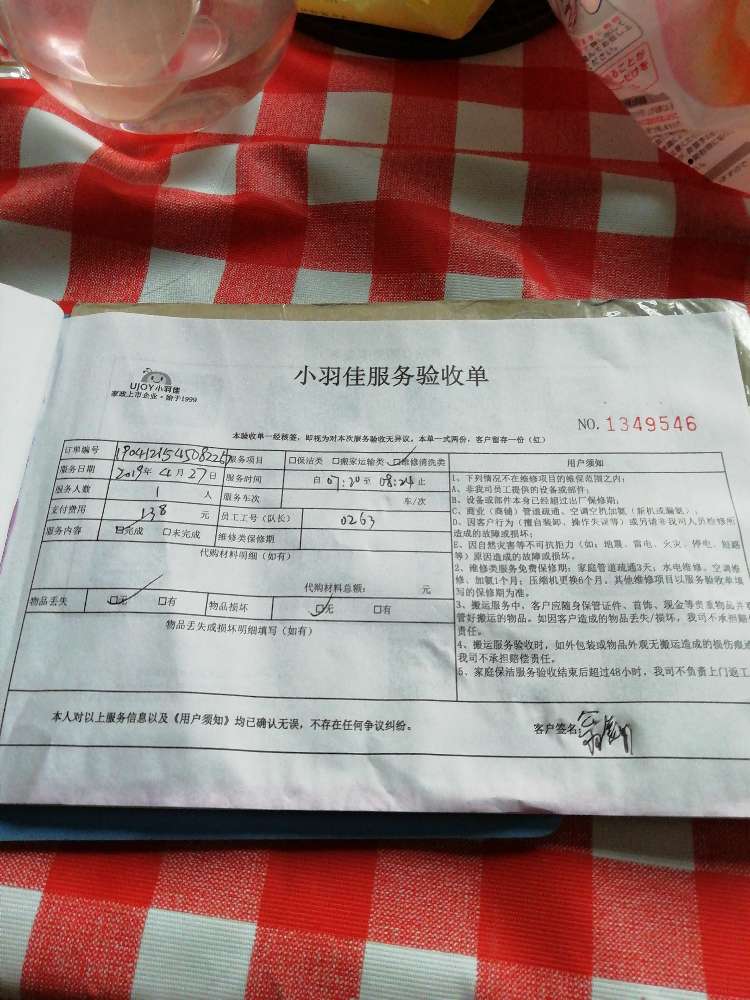 小羽佳服务验收单
UJOY小羽佳
家政上市企业·始于1999
NO. 1349546
本验收单一经核签，即视为对本次服务验收无异议。本单一式两份，客户留存一份（红）
订单编号 服务项目 □保洁类 □搬家运输类 □维修清洗类 用户须知
服务日期 2019年 4月 27日 服务时间 自 07:20 至 08:24 止
服务人数 1 人 服务车次 车/次
支付费用 138 元 员工工号（队长） 0263
服务内容 □完成 □未完成 维修类保修期
代购材料明细（如有）
代购材料总额： 元
物品丢失 □无 □有 物品损坏 □无 □有
物品丢失或损坏明细填写（如有）
1、下列情况不在维修项目的维保范围之内：
A、非我司员工提供的设备或部件；
B、设备或部件本身已经超过出厂保修期；
C、商业（商铺）管道疏通、空调空机加氨（新机或漏氨）；
D、因客户行为（擅自装卸、操作失误等）或另请非我司人员检修所
造成的故障或损坏；
E、因自然灾害等不可抗拒力（如：地震、雷电、火灾、停电、短路
等）原因造成的故障或损坏。
2、维修类服务免费保修期：家庭管道疏通3天；水电维修、空调维
修、加氨1个月；压缩机更换6个月。其他维修项目以服务验收单填
写的保修期为准。
3、搬运服务中，客户应随身保管证件、首饰、现金等贵重物品并
管好搬运的物品。如因客户造成的物品丢失/损坏，我司不承担赔
责任。
4、搬运服务验收时，如外包装或物品外观无搬运造成的损伤
我司不承担赔偿责任。
5、家庭保洁服务验收结束后超过48小时，我司不负责上门返工
本人对以上服务信息以及《用户须知》均已确认无误，不存在任何争议纠纷。
客户签名：